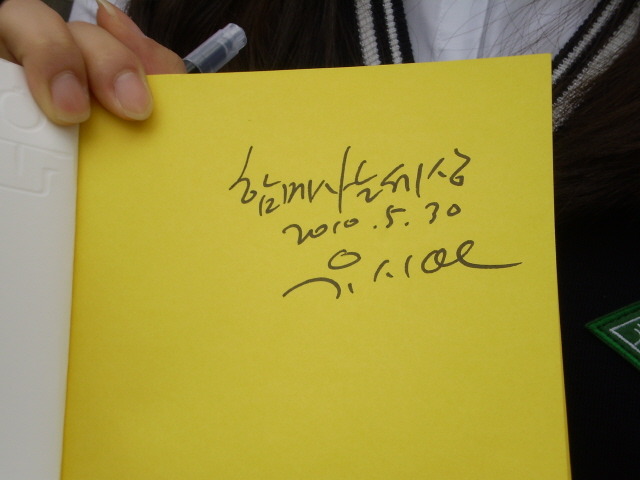 함께사는세상
2010.5.30
유시민